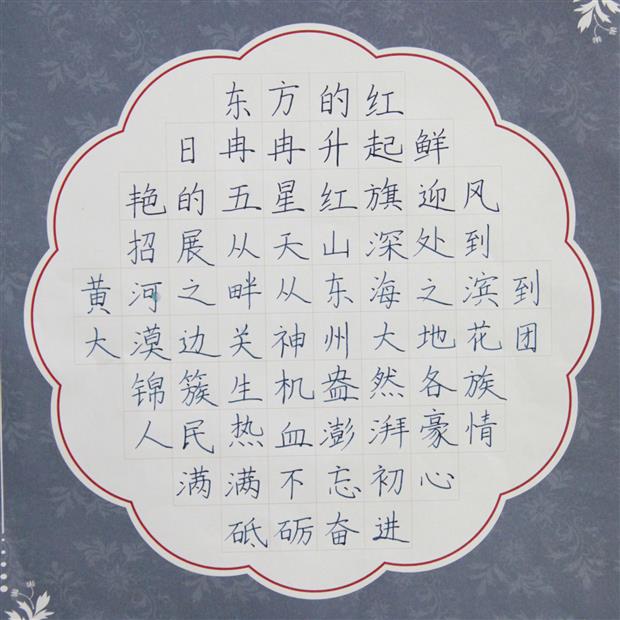 东方的红
日冉冉升起鲜
艳的五星红旗迎风
招展从天山深处到
黄河之畔从东海之滨到
大漠边关神州大地花团
锦簇生机盎然各族
人民热血澎湃豪情
满满不忘初心
砥砺奋进